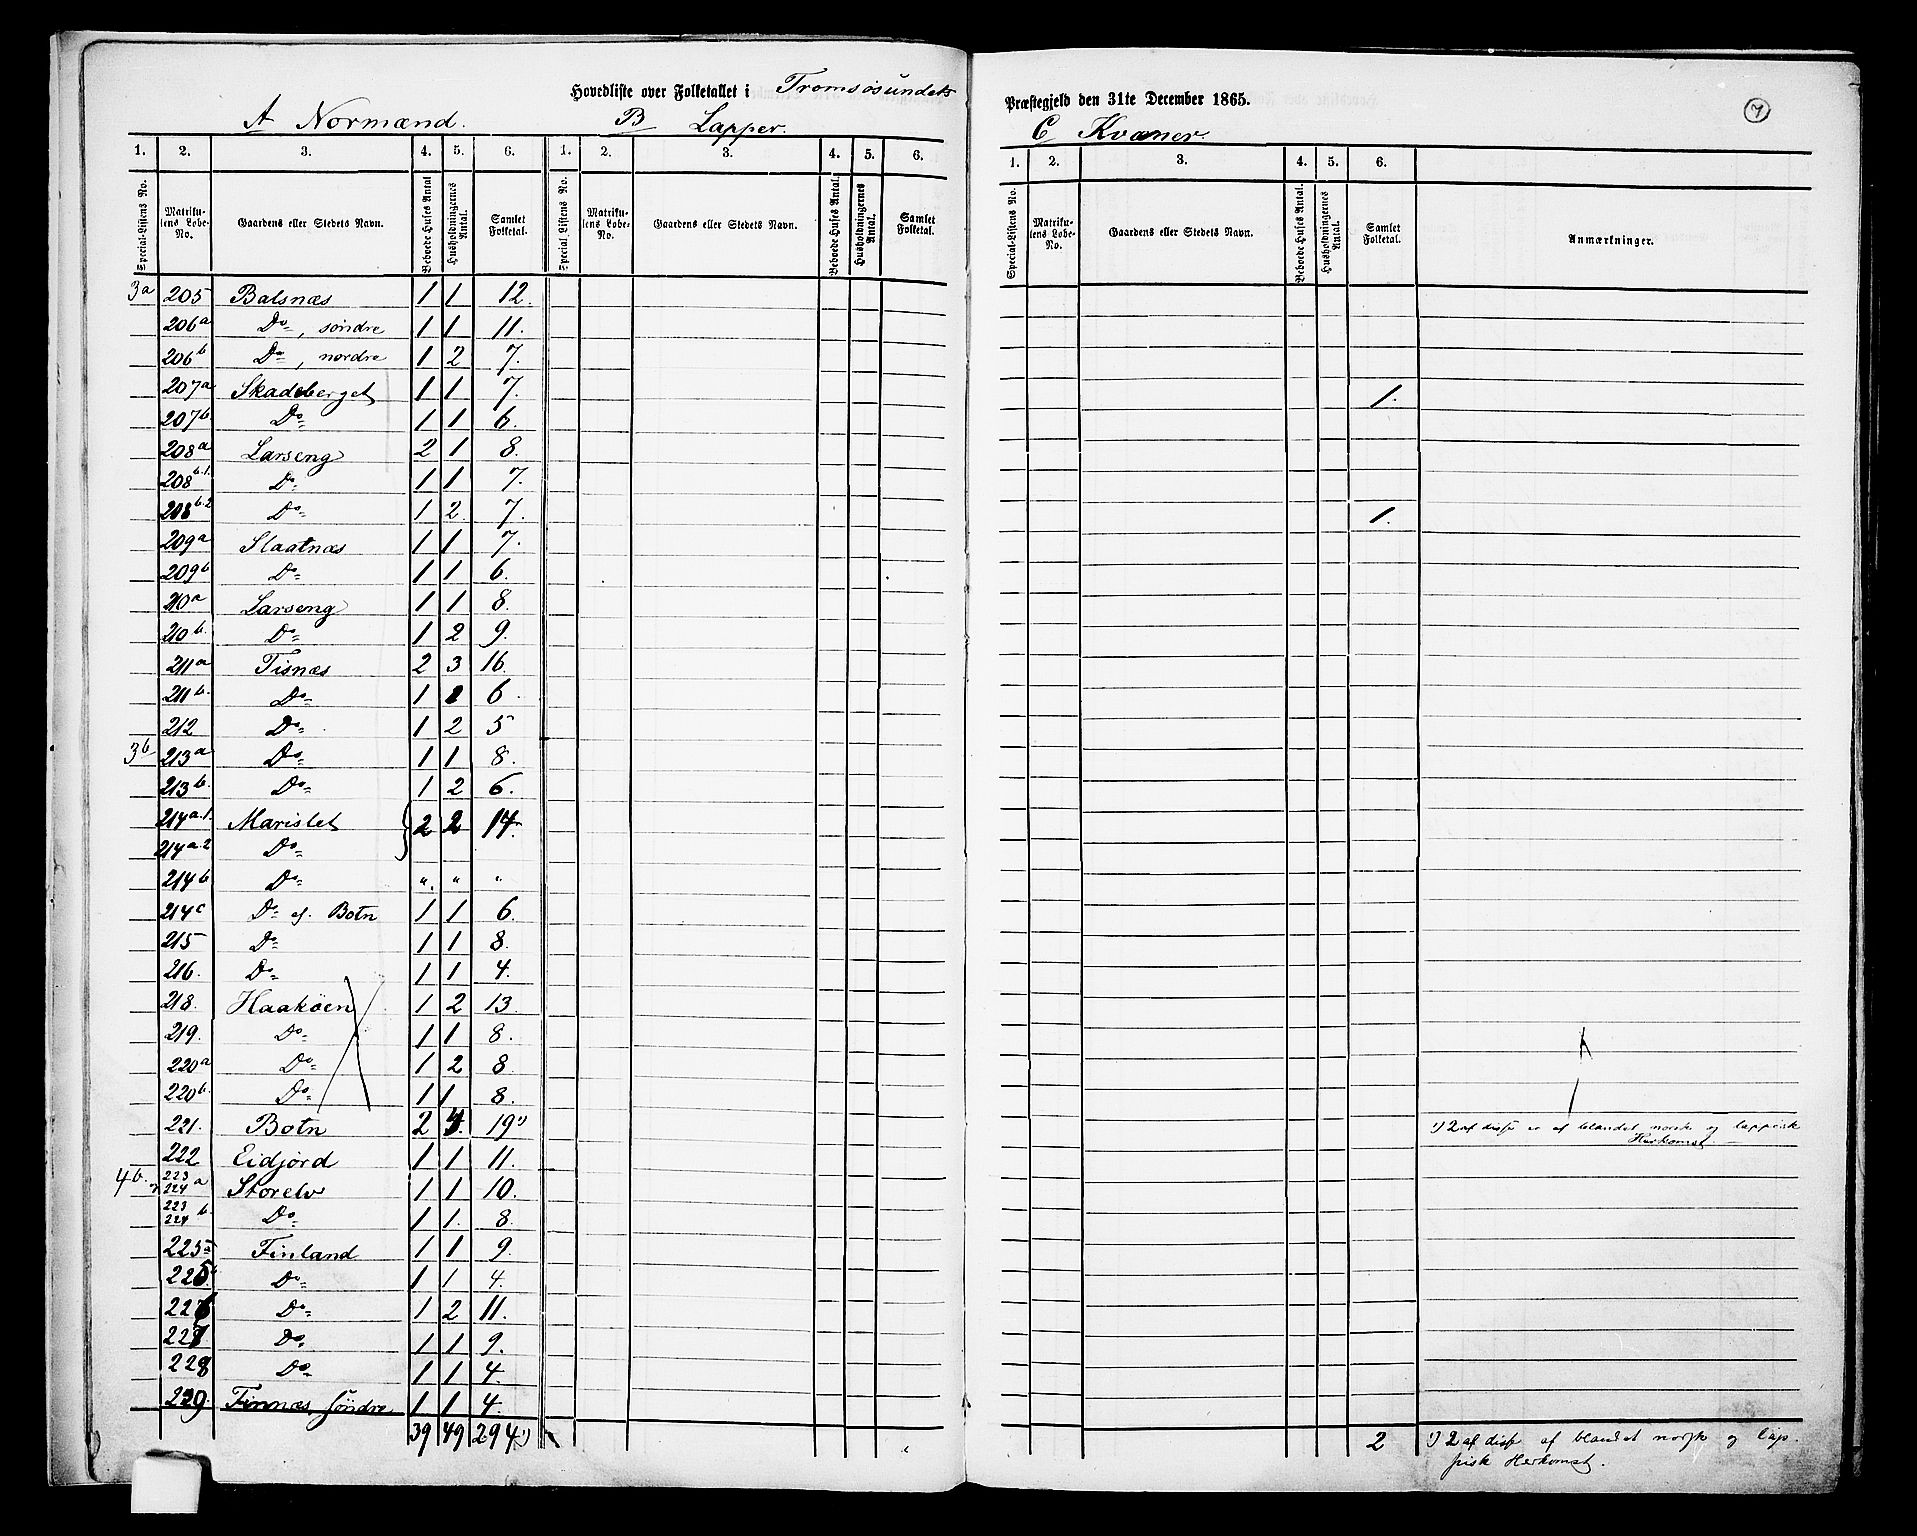 Hovedliste over Folketallet i Tromsøsundets Præstegjeld den 31te December 1865.
7
A Normænd. B Lapper. C Kvæner.
1. 2. 3. 4. 5. 6. 1. 2. 3. 4. 5. 6. 1. 2. 3. 4. 5. 6.
Special-Listens No. Matrikulens Løbe-No. Gaardens eller Stedets Navn. Beboede Huses Antal Husholdningernes Antal. Samlet Folketal. Special-Listens No. Matrikulens Løbe-No. Gaardens eller Stedets Navn. Beboede Huses Antal. Husholdningernes Antal. Samlet Folketal. Special-Listens No. Matrikulens Løbe-No. Gaardens eller Stedets Navn. Beboede Huses Antal. Husholdningernes Antal. Samlet Folketal. Anmærkninger.
3a 205 Balsnæs 1 1 12.
206a Do, søndre 1 1 11.
206b Do, nordre 1 2 7.
207a Skadeberget 1 1 7. 1.
207b. Do 1 1 6.
208a Larseng 2 1 8.
208b.1. Do 1 1 7.
208b.2 Do 1 2 7. 1.
209a Slaatnæs 1 1 7.
209b Do 1 1 6.
210a Larseng 1 1 8.
210b. Do 1 2 9.
211a Tisnæs 2 3 16.
211b. Do 1 1 6.
212 Do 1 2 5
3b 213a Do 1 1 8.
213b. Do 1 2 6.
214a.1. Marislet } 2 2 14.
214a.2 Do
214b Do " " "
214c Do af. Botn 1 1 6.
215 Do 1 1 8.
216. Do 1 1 4.
218. Haakøen 1 2 13.
219. Do 1 1 8.
220a Do 1 2 8
220b. Do 1 1 8.
221. Botn 2 4. 19 1) 1) 2 af disse er af blandet norsk og lappisk
Herkomst.
222 Eidjord 1 1 11.
4b. 223 224 a Storelv 1 1 10.
223 224 b. Do 1 1. 8.
225a Finland 1 1 9.
225b Do 1 1 4.
226 Do 1 2 11.
227 Do 1 1 9.
228 Do 1 1 4.
229 Finnæs, søndre 1 1 4.
39 49 294 1) 2 1) 2 af disse af blandet norsk og lap-
pisk Herkomst.